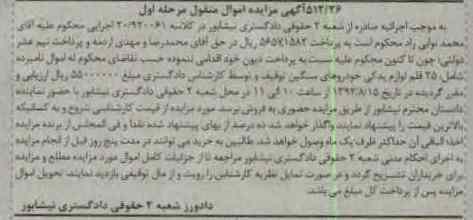 ۵۱۳/۲۶آگهی مزایده اموال منقول مرحله اول
به موجب اجرائیه صادره از شعبه ۲ حقوقی دادگستری نیشابور در کلاسه ۲۰/۹۲۰۰۶۱ اجرایی محکوم علیه آقای
محمد نوایی راد محکوم است به پرداخت ۵۶۵۷۱۵۸۲ ریال در حق آقای محمدرضا و مهدی اردمه و پرداخت نیم عشر
دولتی؛ چون تا کنون محکوم علیه نسبت به پرداخت دیون خود اقدامی ننموده حسب تقاضای محکوم له اموال نامبرده
شامل: ۲۵ قلم لوازم یدکی خودروهای سنگین توقیف و توسط کارشناس دادگستری مبلغ ۵۵۰۰۰۰۰۰ ریال ارزیابی و
مقرر گردیده در تاریخ ۱۳۹۲/۸/۱۵ از ساعت ۱۰ الی ۱۱ در محل شعبه ۲ حقوقی دادگستری نیشابور با حضور نماینده
دادستان محترم نیشابور از طریق مزایده حضوری به فروش برسد. مورد مزایده از قیمت کارشناسی شروع و به کسانیکه
بالاترین قیمت را پیشنهاد نمایند واگذار خواهد شد ده درصد از بهای پیشنهاد شده نقدا و فی المجلس از برنده مزایده
اخذ الباقی آن حداکثر ظرف یک ماه وصول خواهد شد. طالبین به خرید می توانند در مدت پنج روز قبل از انجام مزایده
به اجرای احکام مدنی شعبه ۲ حقوقی دادگستری نیشابور مراجعه تا از جزئیات کامل اموال مورد مزایده مطلع و مزایده
برای خریداران تشریح گردد و در صورت تمایل نظریه کارشناس را رویت و از مال توقیفی بازدید نمایند. تحویل اموال
مزایده پس از پرداخت کل مبلغ می باشد.
دادورز شعبه ۲ حقوقی دادگستری نیشابور